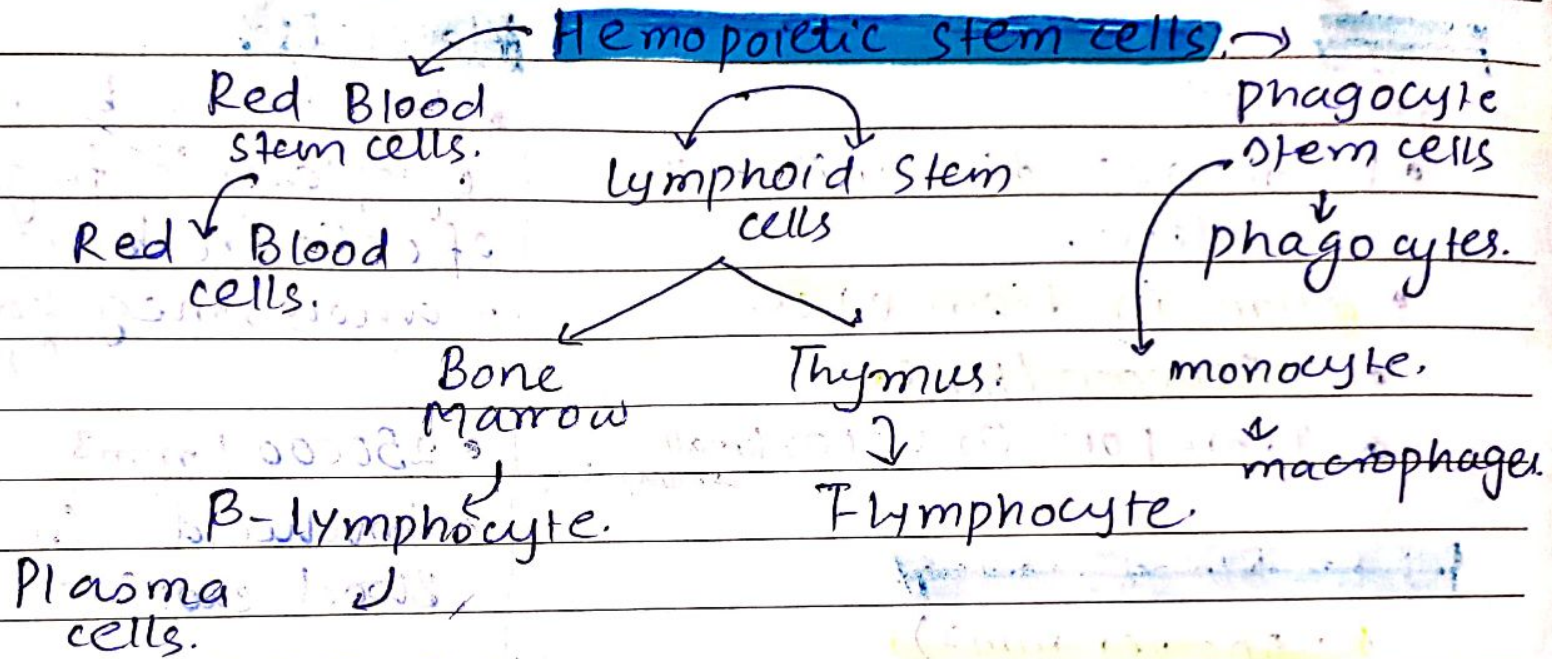 Hemopoietic stem cells.
Red Blood
stem cells.
Lymphoid Stem
cells
phagocyte
stem cells
Red Blood
cells.
phagocytes.
Bone
Marrow
Thymus.
monocyte.
macrophages.
B-lymphocyte.
T lymphocyte.
Plasma
cells.